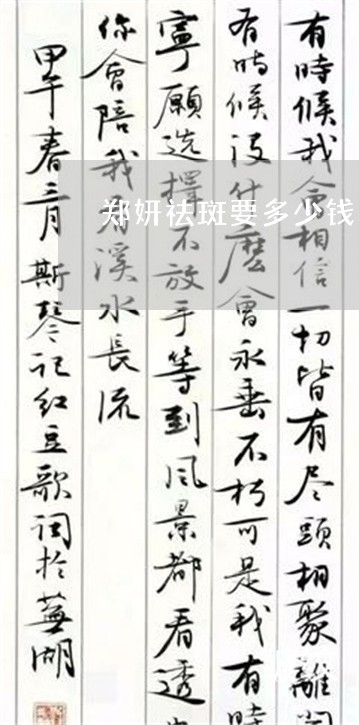 有時候我会相信一切皆有尽頭相聚離
有時候没什麽會永垂不朽可是我有時
寧願选擇不放手等到风景都看透
你會陪我看溪水長流
甲午春三月斯琴记红豆歌词於蕪湖
郑妍祛斑要多少钱